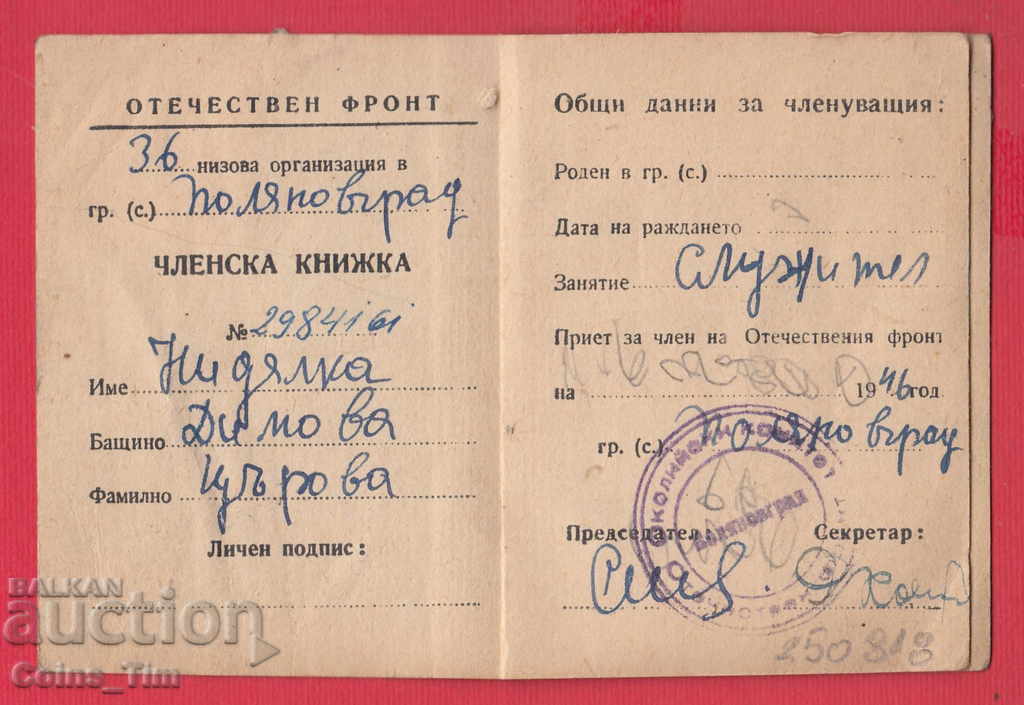 ОТЕЧЕСТВЕН ФРОНТ
36 низова организация в
гр. (с.) Поляновград
ЧЛЕНСКА КНИЖКА
№ 298416i
Име Нидялка
Бащино Димова
Фамилно Църова
Личен подпис:
Общи данни за членуващия:
Роден в гр. (с.)
Дата на раждането
Занятие Служител
Приет за член на Отечествения фронт
на 1946 год.
гр. (с.) Поляновград
ОКОЛИЙСКИ КОМИТЕТ
ПОЛЯНОВГРАД
Председател: Секретар:
250818
BALKAN
auction
Coins_Tim